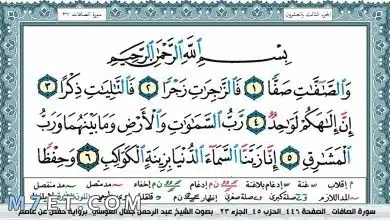 الجزء الثالث والعشرون
سورة الصافات ٣٧
بِسْمِ اللَّهِ الرَّحْمَٰنِ الرَّحِيمِ
وَالصَّافَّاتِ صَفًّا ١ فَالزَّاجِرَاتِ زَجْرًا ٢ فَالتَّالِيَاتِ ذِكْرًا ٣
إِنَّ إِلَٰهَكُمْ لَوَاحِدٌ ٤ رَّبُّ السَّمَاوَاتِ وَالْأَرْضِ وَمَا بَيْنَهُمَا وَرَبُّ
الْمَشَارِقِ ٥ إِنَّا زَيَّنَّا السَّمَاءَ الدُّنْيَا بِزِينَةٍ الْكَوَاكِبِ ٦ وَحِفْظًا
م إقلاب غنة إدغام بلاغنة إدغام إخفاء مد متصل مد منفصل
سورة الصافات الصفحة ٤٤٦ الحزب ٤٥ الجزء ٢٣ بصوت الشيخ عبد الرحمن جمال العوسي برواية حفص عن عاصم
M7ET.COM